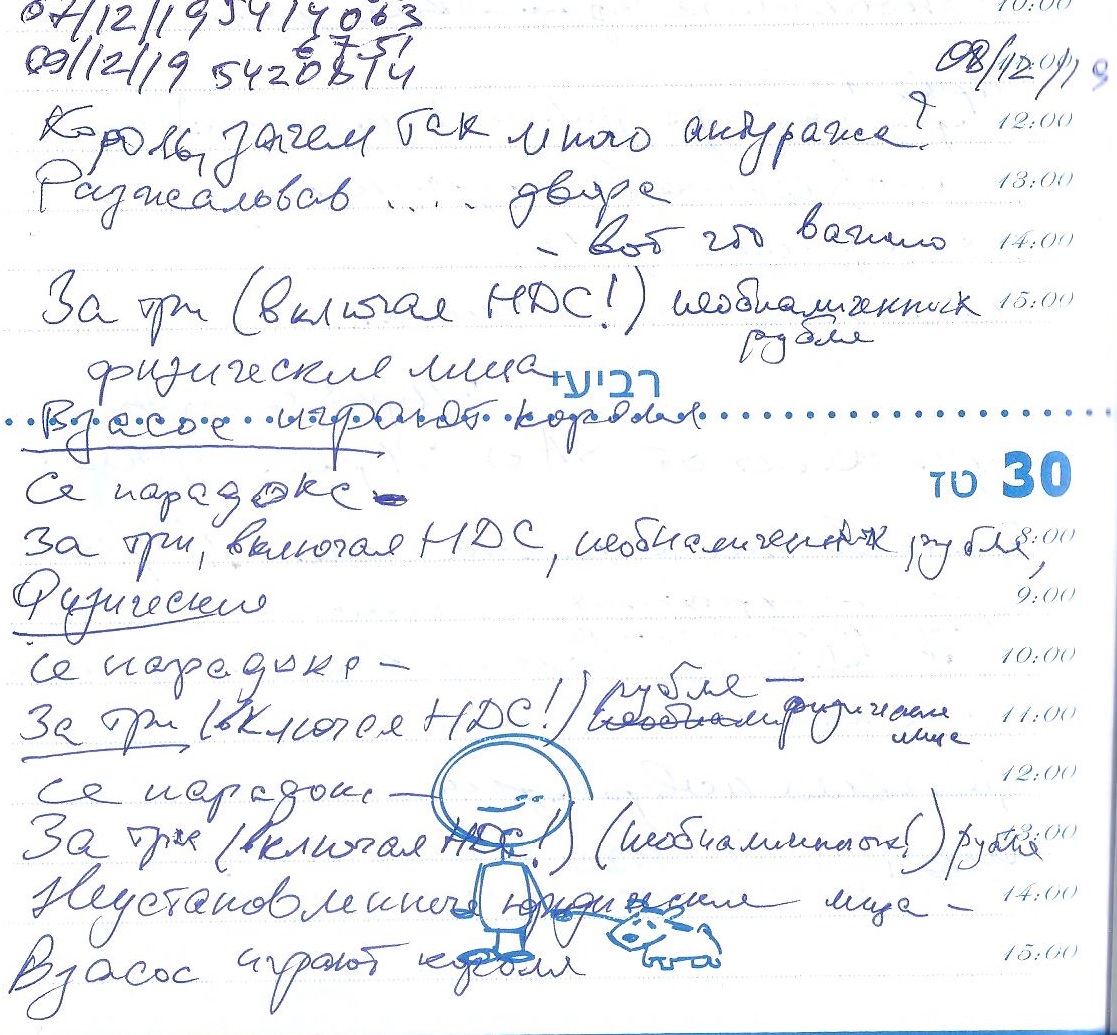 07/12/19 5414063
6751
09/12/19 5420814
08/12/19
10:00
Король, зачем так много антуража?
12:00
Разжаловав .... двора
13:00
- вот что важно
14:00
За три (включая НДС!) необналиченных
15:00
рубля
физические лица
רביעי
Взасос играют короля
Се парадокс
30 טז
За три, включая НДС, необналиченных рубля,
8:00
Физические
9:00
Се парадокс –
10:00
рубля –
За три (включая НДС!) физические
11:00
лица
Се парадокс –
12:00
За три (включая НДС!) (необналиченных!) рубля
13:00
Неустановленные юридические лица –
14:00
Взасос играют короля
15:00